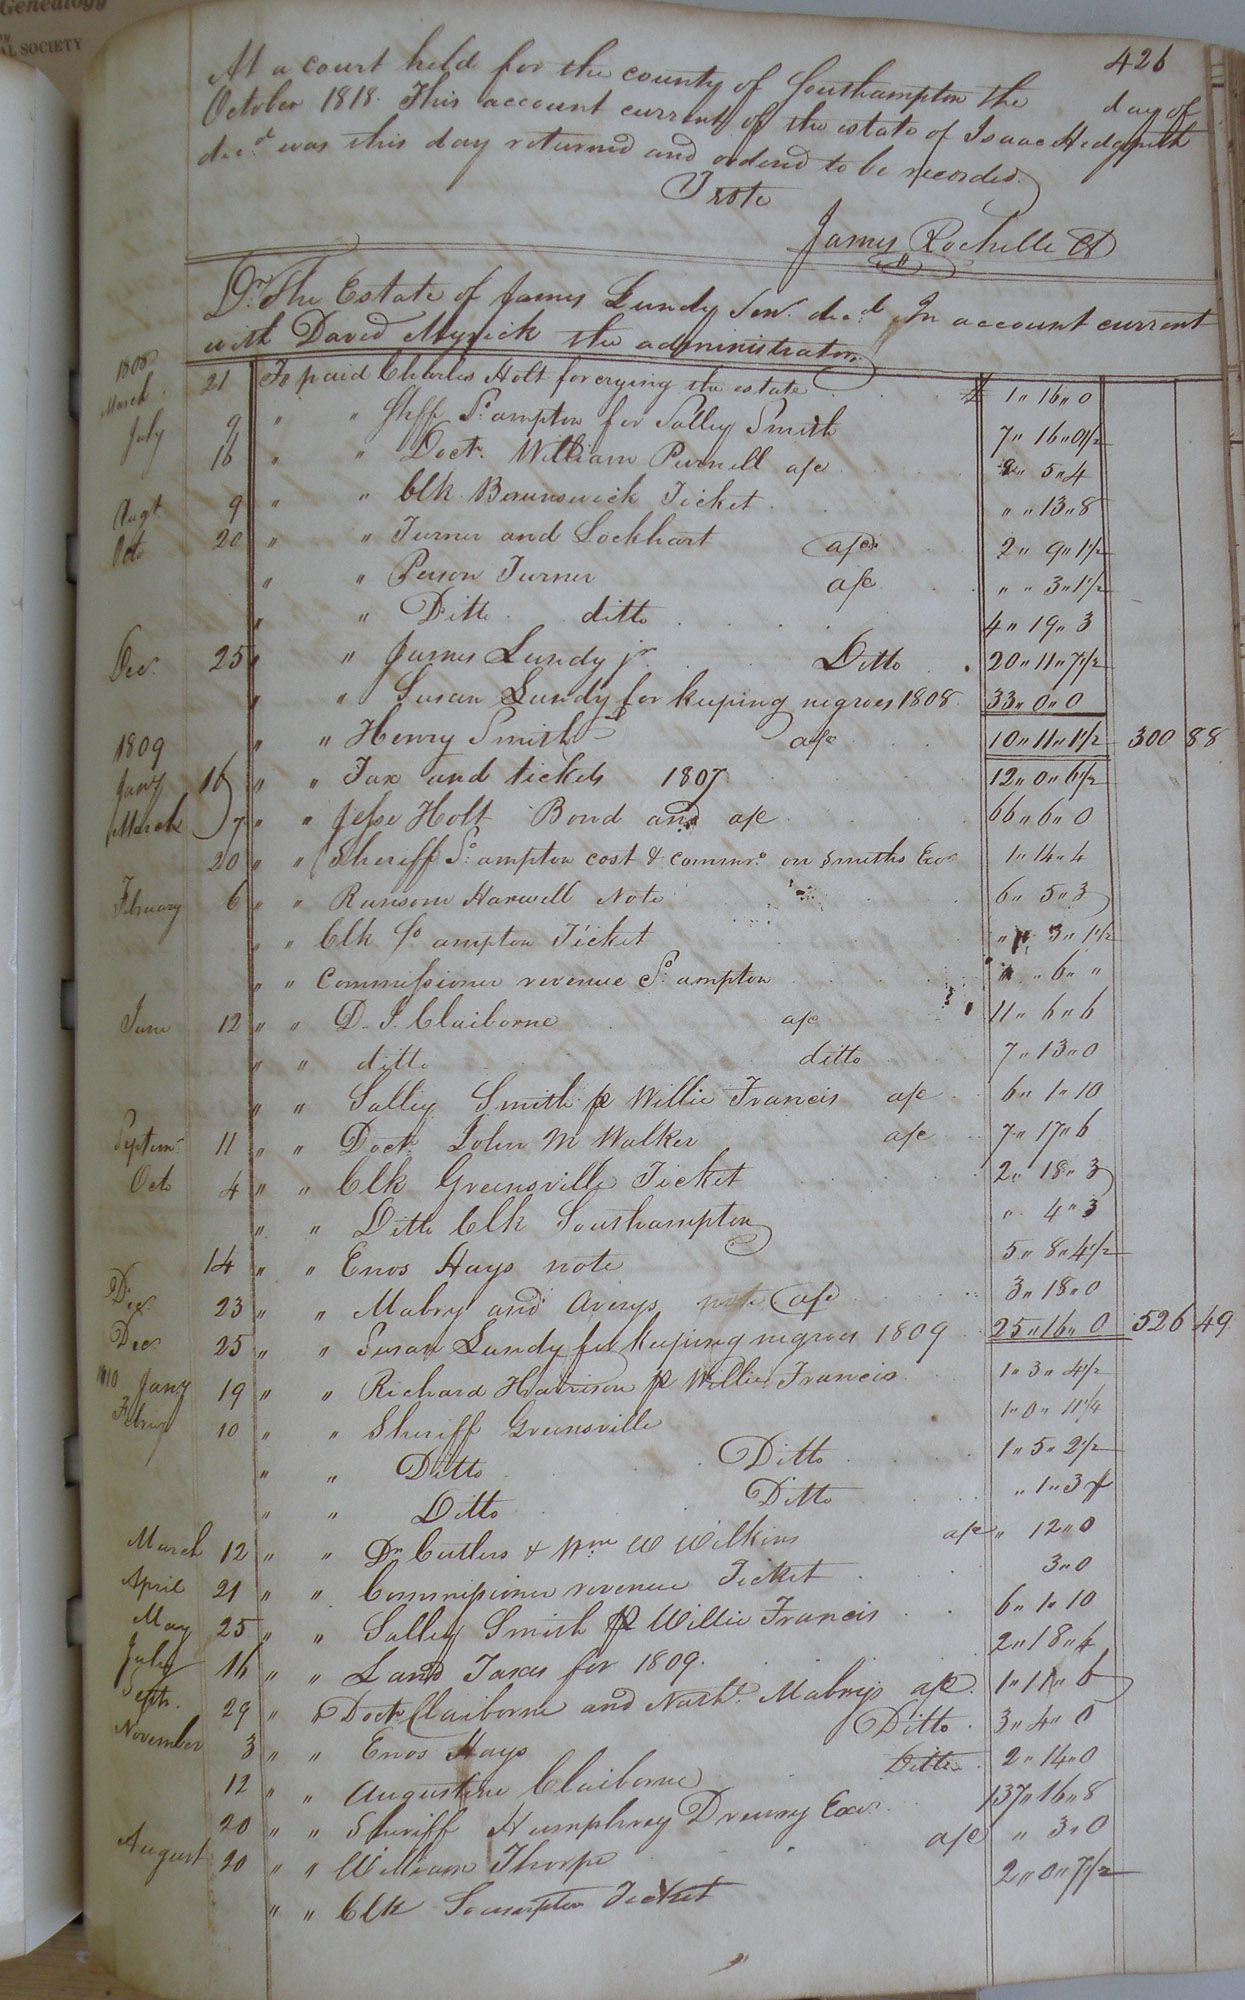 Genealogy
AL SOCIETY
426
At a court held for the county of Southampton the day of
October 1818. This account current of the estate of Isaac Hedgpeth
decd. was this day returned and ordered to be recorded.
Teste
James Rochelle Cl
Dr. The Estate of James Lundy Senr. decd. In account current
with David Myrick the administrator.
1808 March 21 To paid Charles Holt for crying the estate £ 1 " 16 " 0
July 9 " " Sheff So.ampton for Salley Smith 7 " 16 " 0 1/2
16 " " Doctr. William Purnell a/c 2 " 5 " 4
Augt. 9 " " Clk Brunswick Ticket " " 13 " 8
Octo 20 " " Turner and Lockhart a/c 2 " 9 " 1 1/2
" " Person Turner a/c " " 3 " 1 1/2
" " Ditto ditto 4 " 19 " 3
Decr. 25 " " James Lundy jr. Ditto 20 " 11 " 7 1/2
" " Susan Lundy for keeping negroes 1808 33 " 0 " 0
1809 " " Henry Smith a/c 10 " 11 " 1 1/2 300 88
Jany 16 " " Tax and tickets 1807 12 " 0 " 6 1/2
March 7 " " Jesse Holt Bond and a/c 66 " 6 " 0
20 " " Sheriff So.ampton cost & commrs. on Smiths Exor 1 " 14 " 4
February 6 " " Ransom Harwell Note 6 " 5 " 3
" " Clk So ampton Ticket " " 3 " 1 1/2
" " Commissioner revenue So.ampton " " 6 " "
June 12 " " D. J. Claiborne a/c 11 " 6 " 6
" " ditto ditto 7 " 13 " 0
" " Salley Smith p Willie Francis a/c 6 " 1 " 10
Septemr 11 " " Doctr. John M Walker a/c 7 " 17 " 6
Octo 4 " " Clk Greensville Ticket 2 " 18 " 3
" " Ditto Clk Southampton " 4 " 3
14 " " Enos Hays note 5 " 8 " 4 1/2
Decr. 23 " " Mabry and Averys note a/c 3 " 18 " 0
Dec 25 " " Susan Lundy for keeping negroes 1809 25 " 16 " 0 526 49
1810 Jany 19 " " Richard Harrison p Willie Francis 1 " 3 " 4 1/2
Febury 10 " " Sheriff Greensville 1 " 0 " 11 1/4
" " Ditto Ditto 1 " 5 " 2 1/2
" " Ditto Ditto " 1 " 3
March 12 " " Dr Cutlers & Wm W Wilkins a/c " 12 " 0
April 21 " " Commissioner revenue Ticket 3 " 0
May 25 " " Salley Smith p Willie Francis 6 " 1 " 10
July 16 " " Land Taxes for 1809. 2 " 18 " 4
Septr. 29 " " Doctr Claiborne and Nathl. Mabrys a/c 1 " 11 " 6
November 3 " " Enos Hays Ditto 3 " 4 " 0
12 " " Augustine Claiborne Ditto 2 " 14 " 0
20 " " Sheriff Humphrey Drewry Exor. 137 " 16 " 8
August 20 " " William Thorpe a/c " 3 " 0
" " Clk Ticket 2 " 0 " 7 1/2